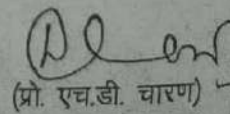 (प्रो. एच.डी. चारण)